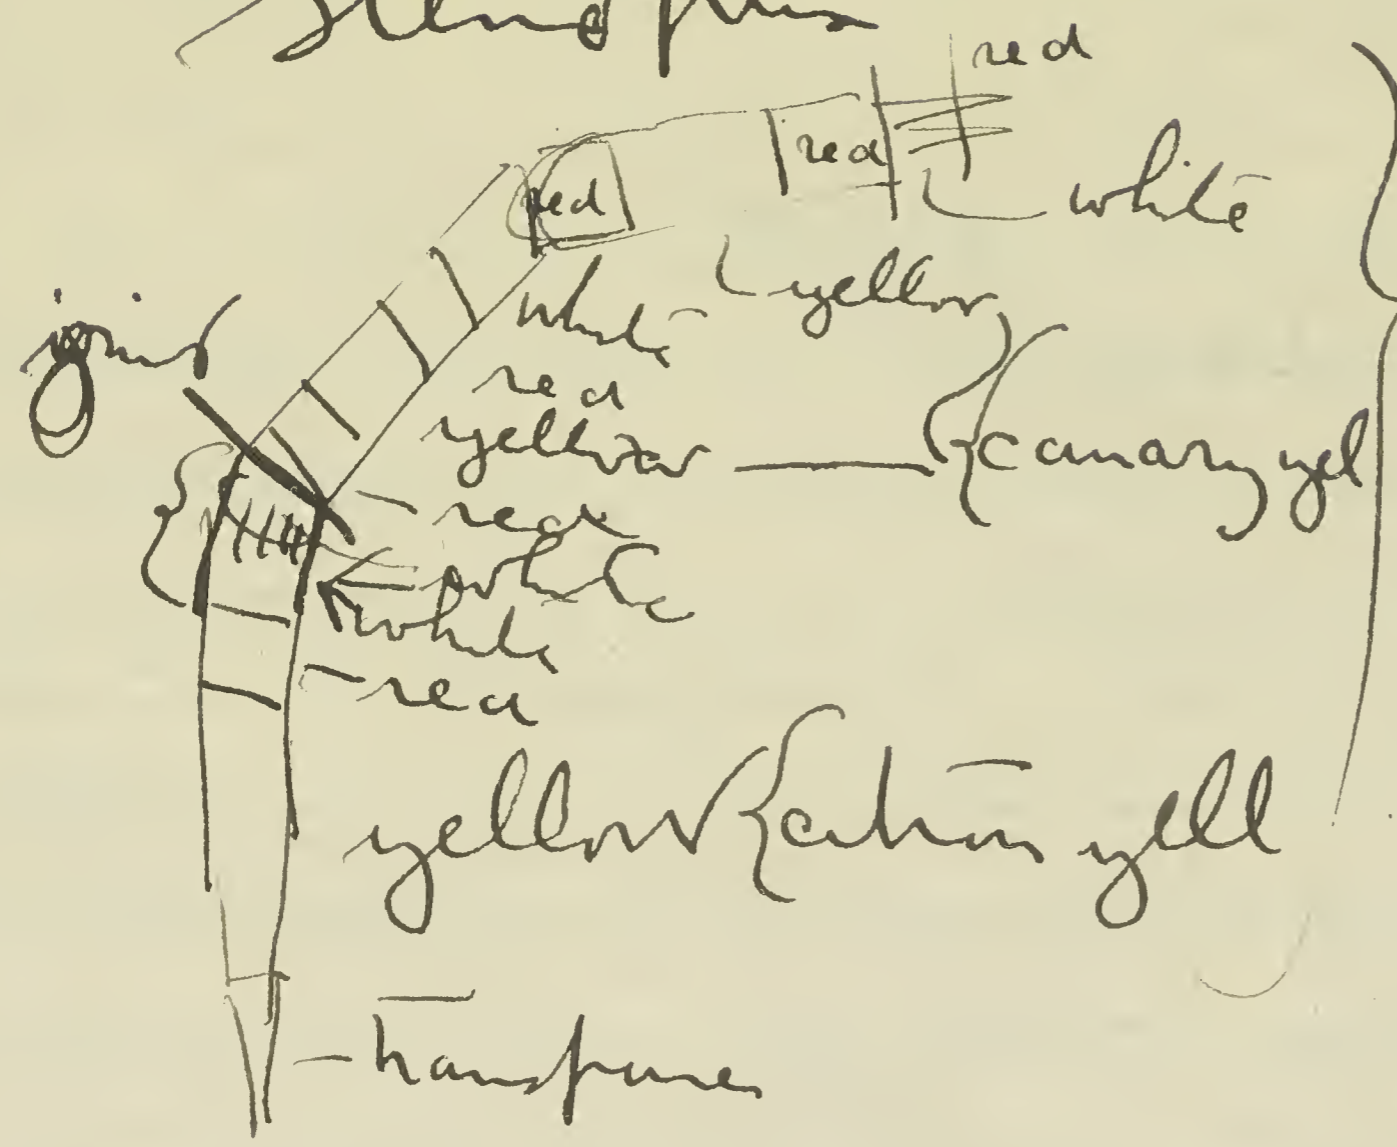 red
red
red
white
yellow
joint
white
red
yellow
canary yel
red
white
white
red
yellow
citron yell